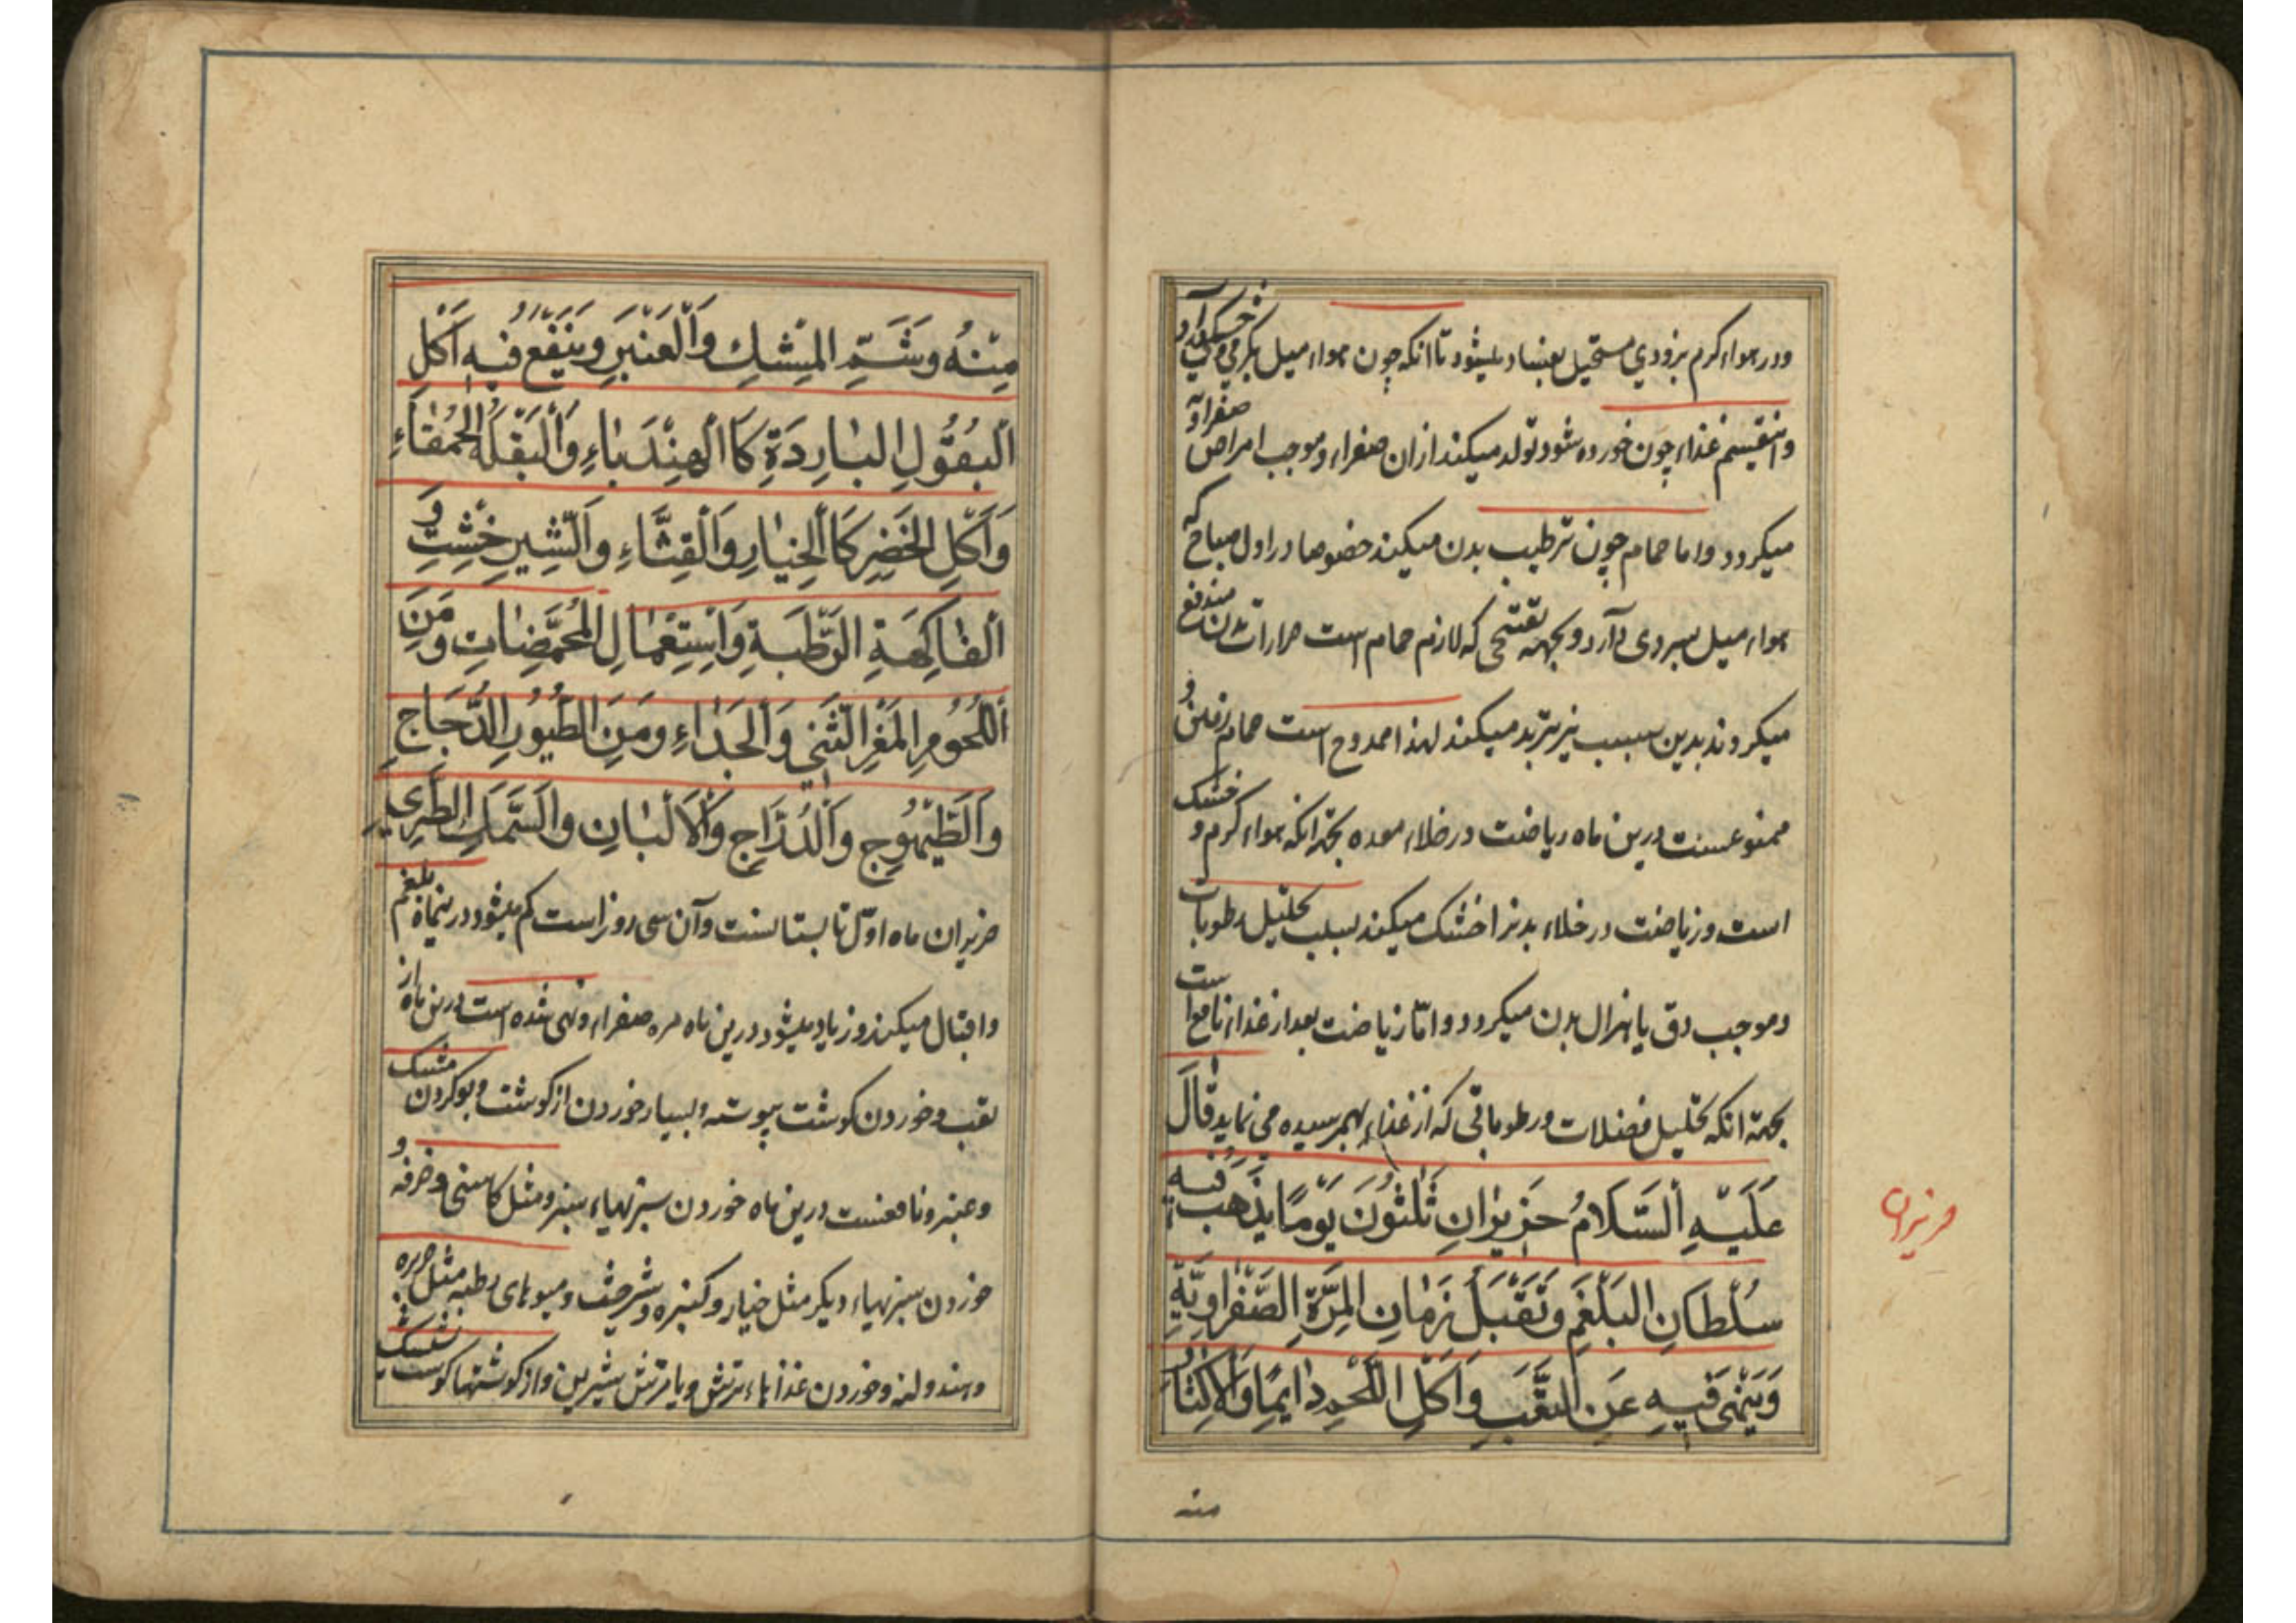 ودر هواء کرم بزودي مستحیل بفساد میشود تا انکه چون هواء میل بکرمي و خشکي می آورد
وانقیسم غذاء چون خورده شود تولد میکند ازان صفراء وموجب امراض صفراویه
میکردد واما حمام چون ترطیب بدن میکند خصوصا در اول صباح که
هواء میل بسردی دارد وبجهة تفتحی که لازم حمام است حرارات بدن مندفع
میکردند بدین سبب نیز تبرید میکند لهذا ممدوح است حمام رفتن و
ممنوعست درین ماه ریاضت در خلاء معده بجهة انکه هواء کرم و خشک
است وریاضت در خلاء بدنرا خشک میکند بسبب تحلیل رطوبات
وموجب دق یا هزال بدن میکردد واما ریاضت بعد از غذاء نافع است
بجهة انکه تحلیل فضلات ورطوباتی که از غذاء بهمرسیده می نماید قَالَ
عَلَیْهِ اَلسَّلامُ حَزِیْرانِ ثَلٰثُونَ یَوْمًا یَذْهَبُ فیهِ
حزیران
سُلْطَانِ البَلْغَمِ وَتَقْبَلُ زَمٰانِ المِرَّةِ الصَّفْراوِیَّةِ
وَیَنْهٰی فیهِ عَنِ التَّعَبِ وَاَکْلِ اللَّحْمِ دٰایِمًا وَالْاِکْثٰارِ
منه
مِنْهُ وَشَمِّ المِسْكِ وَالْعَنْبَرِ وَیَنْفَعُ فیهِ اَکْلِ
اَلْبُقُولِ البٰارِدَةِ کَاالْهِنْدَبٰاءِ وَالْبَقْلَةِ الحَمْقٰاءِ
وَاَکْلِ الخَضِرِ کَاالْخِیٰارِ وَالْقِثّٰاءِ وَالشِّیرِخِشْتِ وَ
الْفٰاکِهَةِ الرَّطْبَةِ وَاسْتِعْمٰالِ المُحَمَّضٰاتِ وَمِنَ
اَللُّحُومِ المَعْزِ الثَّنِي وَالْجَدٰاءِ وَمِنَ الطُّیُورِ الدَّجَاجِ
وَالطَّیْهُوجِ وَالدُّرّٰاجِ وَالْاَلْبٰانِ وَالسَّمَكِ الطَّرِيِّ
حزیران ماه اوّل تابستانست وآن سی روز است کم میشود در ینماه بلغم
واقبال میکند وزیاد میشود درین ماه مره صفراء ونهی شده است درین ماه از
تعب وخوردن کوشت پیوسته وبسیار خوردن از کوشت وبو کردن مشک
وعنبر ونافعست درین ماه خوردن سبزیهاء سبز ومثل کاسنی وخرفه و
خوردن سبزیهاء دیکر مثل خیار و وشیرخشت ومیوهای رطبه مثل
وهندوانه وخوردن غذاهاء ترش ویا ترش شیرین واز کوشتها کوشت